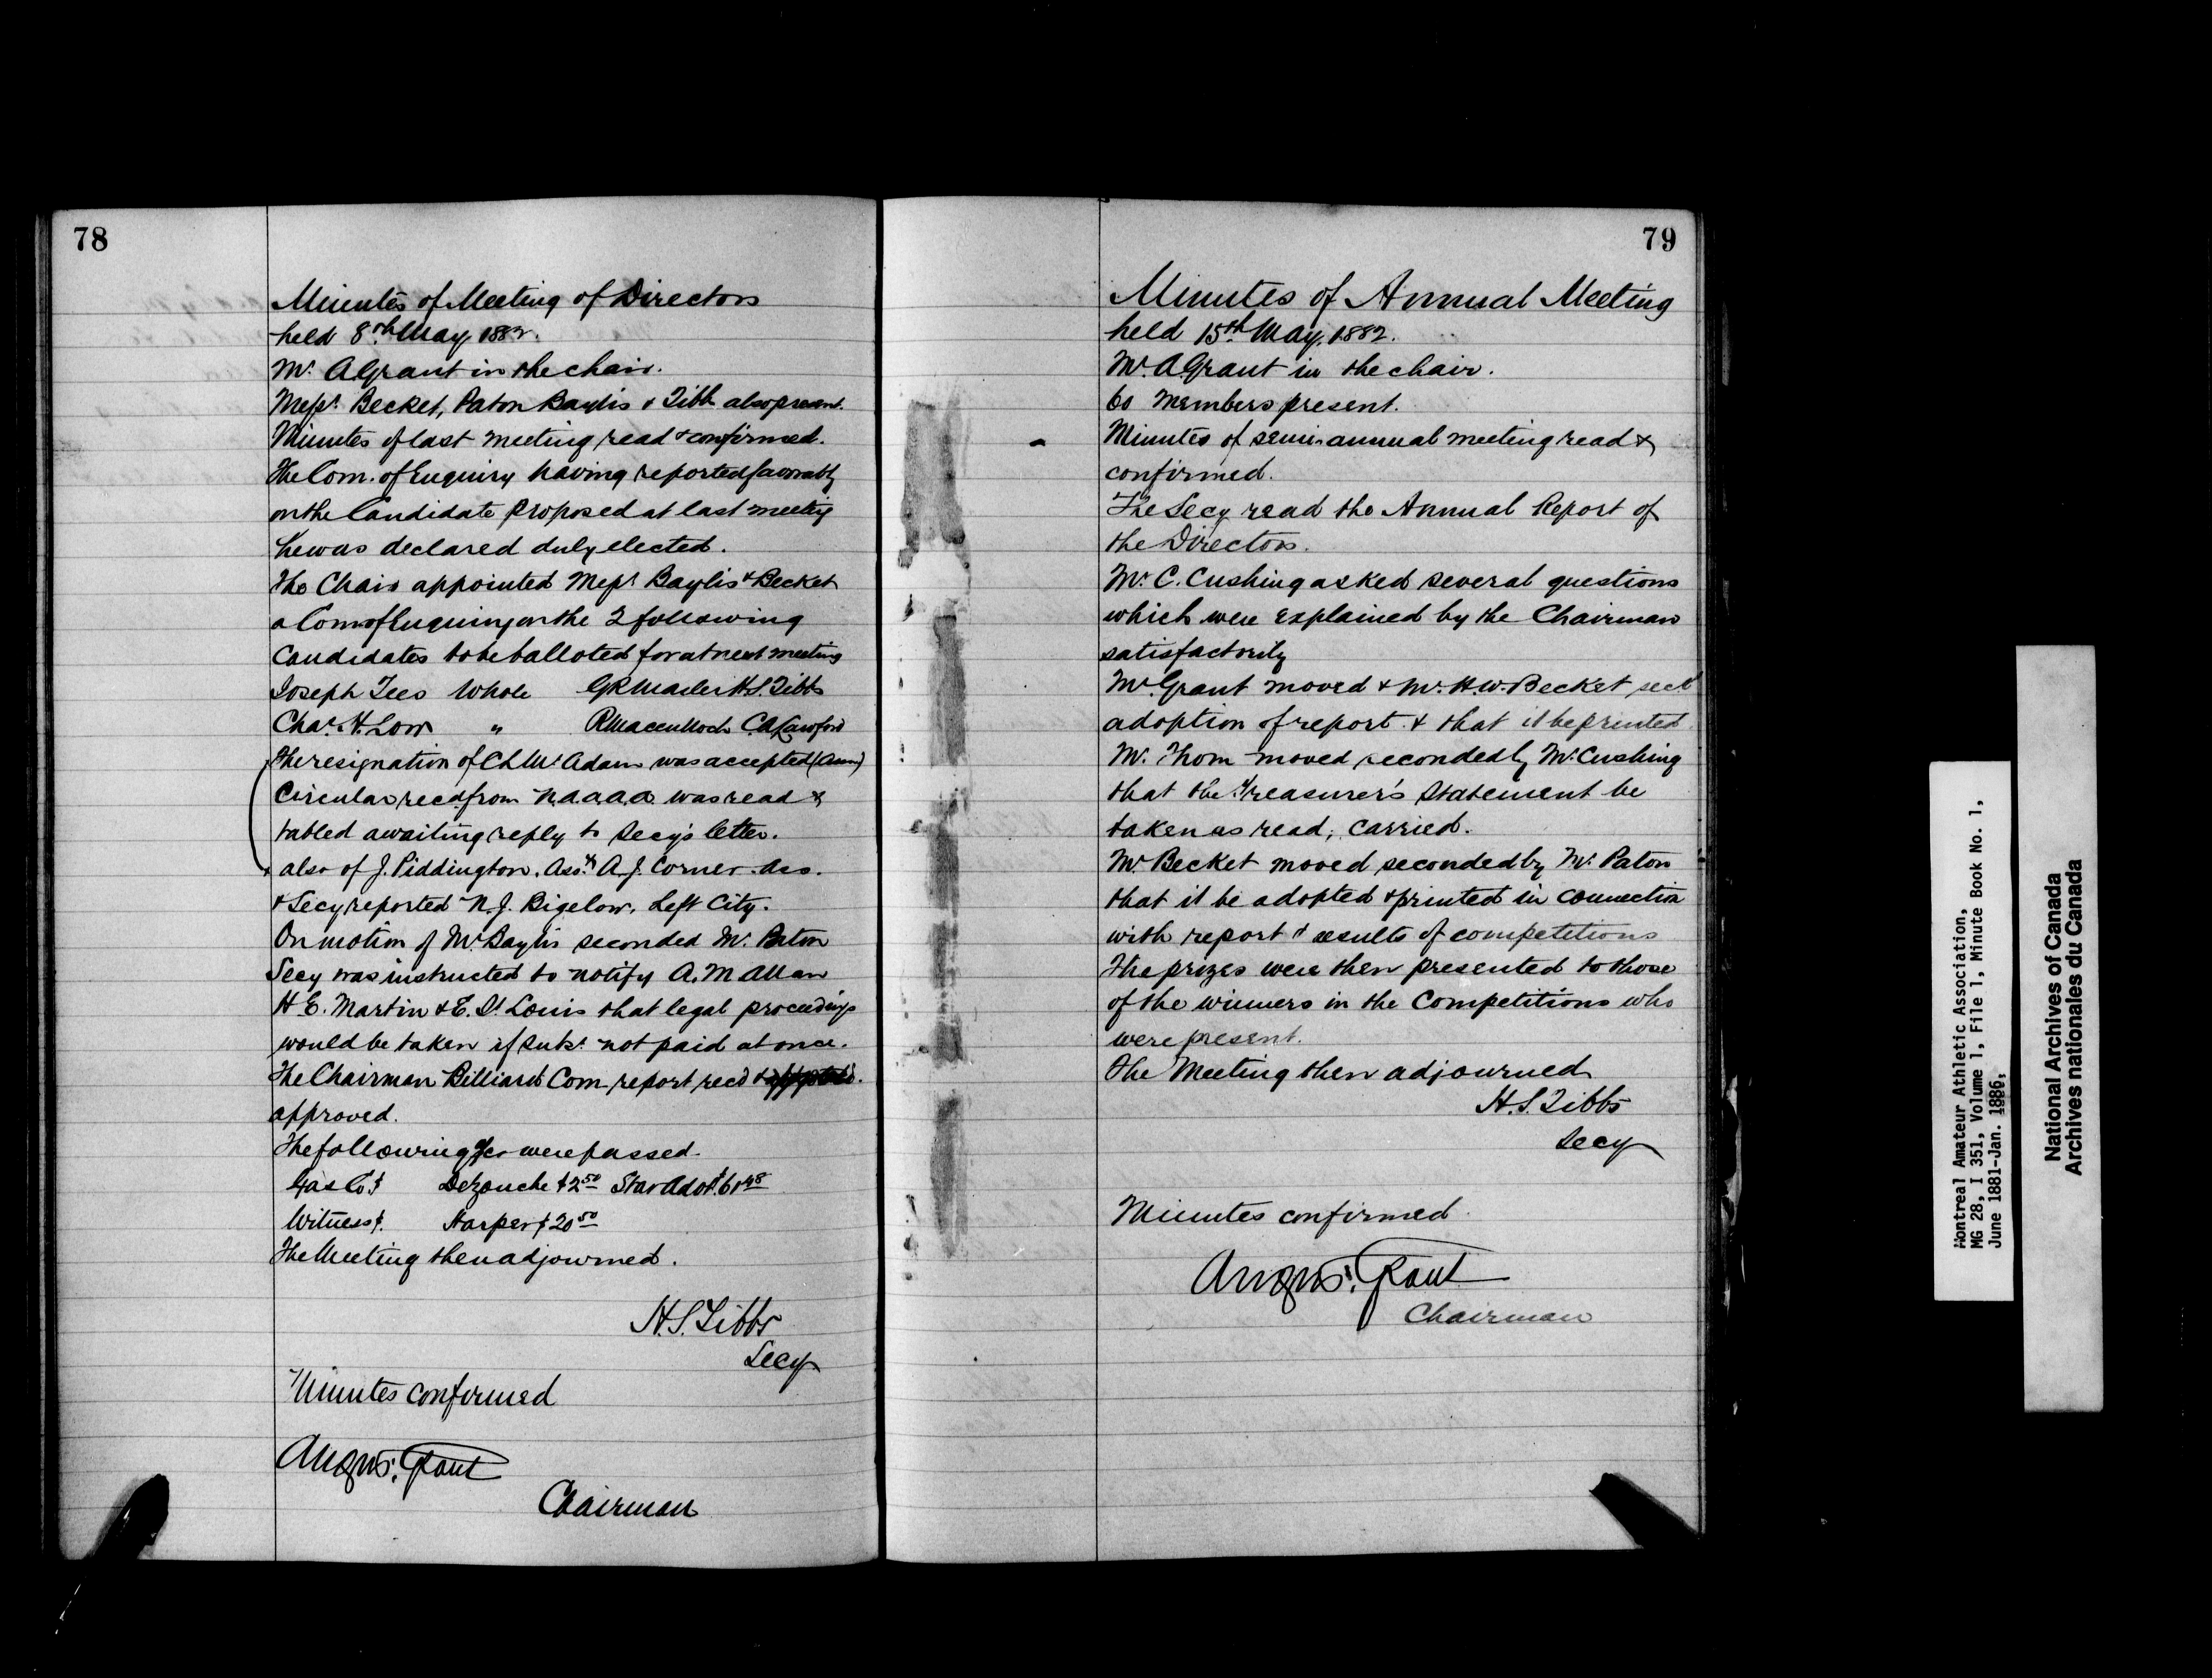 78
Minutes of Meeting of Directors
held 8th May 1882.
Mr. A Grant in the chair.
Messrs. Becket, Paton Baylis & Tibbs also present.
Minutes of last meeting read & confirmed.
The Com. of Enquiry having reported favorably
on the Candidate proposed at last meeting
he was declared duly elected.
The Chair appointed Messrs Baylis & Becket
a Com of Enquiry on the 2 following
Candidates to be balloted for at next meeting
Joseph Tees Whole H.S. Tibbs
Chas. H. Low "
The resignation of McAdam was accepted (Assn)
Circular recd from N.A.A.A.A. was read &
tabled awaiting reply to Secy's letter.
also of J. Piddington. Ass. & A.J. Corner. Ass.
& Secy reported N.J. Bigelow. Left City.
On motion of Mr. Baylis seconded Mr. Paton
Secy was instructed to notify A. M Allan
H. E. Martin & E. St. Louis that legal proceedings
would be taken if subs. not paid at once.
The Chairman Billiard Com report recd &
approved.
The following were passed.
Gas Co. $ Dezouche $2.50 Star Advt $
Witness $. Harper $20.50
The Meeting then adjourned.
H.S. Tibbs
Secy
Minutes confirmed
Angus. Grant
Chairman
79
Minutes of Annual Meeting
held 15th May, 1882.
Mr. A. Grant in the chair.
60 Members present.
Minutes of semi-annual meeting read &
confirmed.
The Secy read the Annual Report of
the Directors.
Mr. C. Cushing asked several questions
which were explained by the Chairman
satisfactorily
Mr. Grant moved & Mr. H.W. Becket secd
adoption of report & that it be printed
Mr. Thom moved seconded by Mr. Cushing
that the Treasurer's Statement be
taken as read, carried.
Mr. Becket moved seconded by Mr. Paton
that it be adopted & printed in connection
with report & results of competitions
The prizes were then presented to those
of the winners in the Competitions who
were present.
The Meeting then adjourned
H.S. Tibbs
Secy
Minutes confirmed
Angus. Grant
Chairman
Montreal Amateur Athletic Association,
MG 28, I 351, Volume 1, File 1, Minute Book No. 1,
June 1881-Jan. 1886,
National Archives of Canada
Archives nationales du Canada